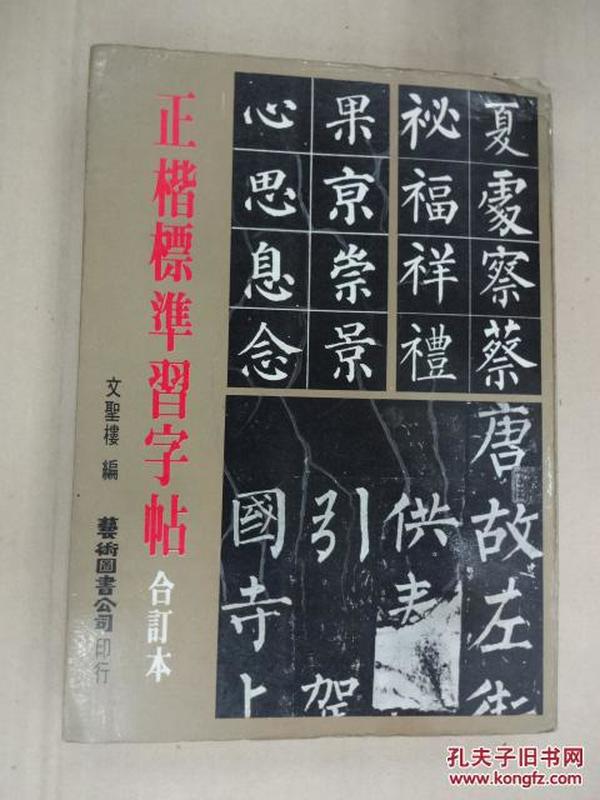 夏處察蔡
祕福祥禮
果京崇景
心思息念
唐故左街
供奉
引駕
國寺上
正楷標準習字帖 合訂本
文聖樓 編
藝術圖書公司 印行
孔夫子旧书网
www.kongfz.com